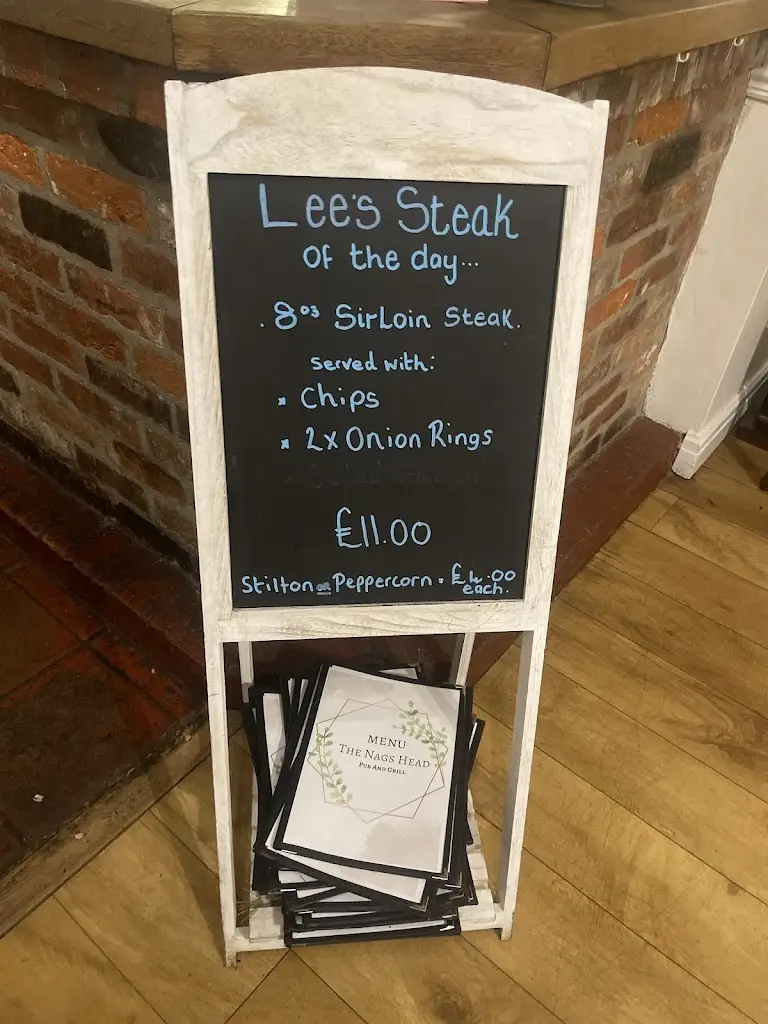 Lee's Steak
Of the day...
. 8oz Sirloin Steak.
served with:
* Chips
* 2x Onion Rings
£11.00
Stilton or Peppercorn = £4.00
each.
MENU
THE NAGS HEAD
PUB AND GRILL